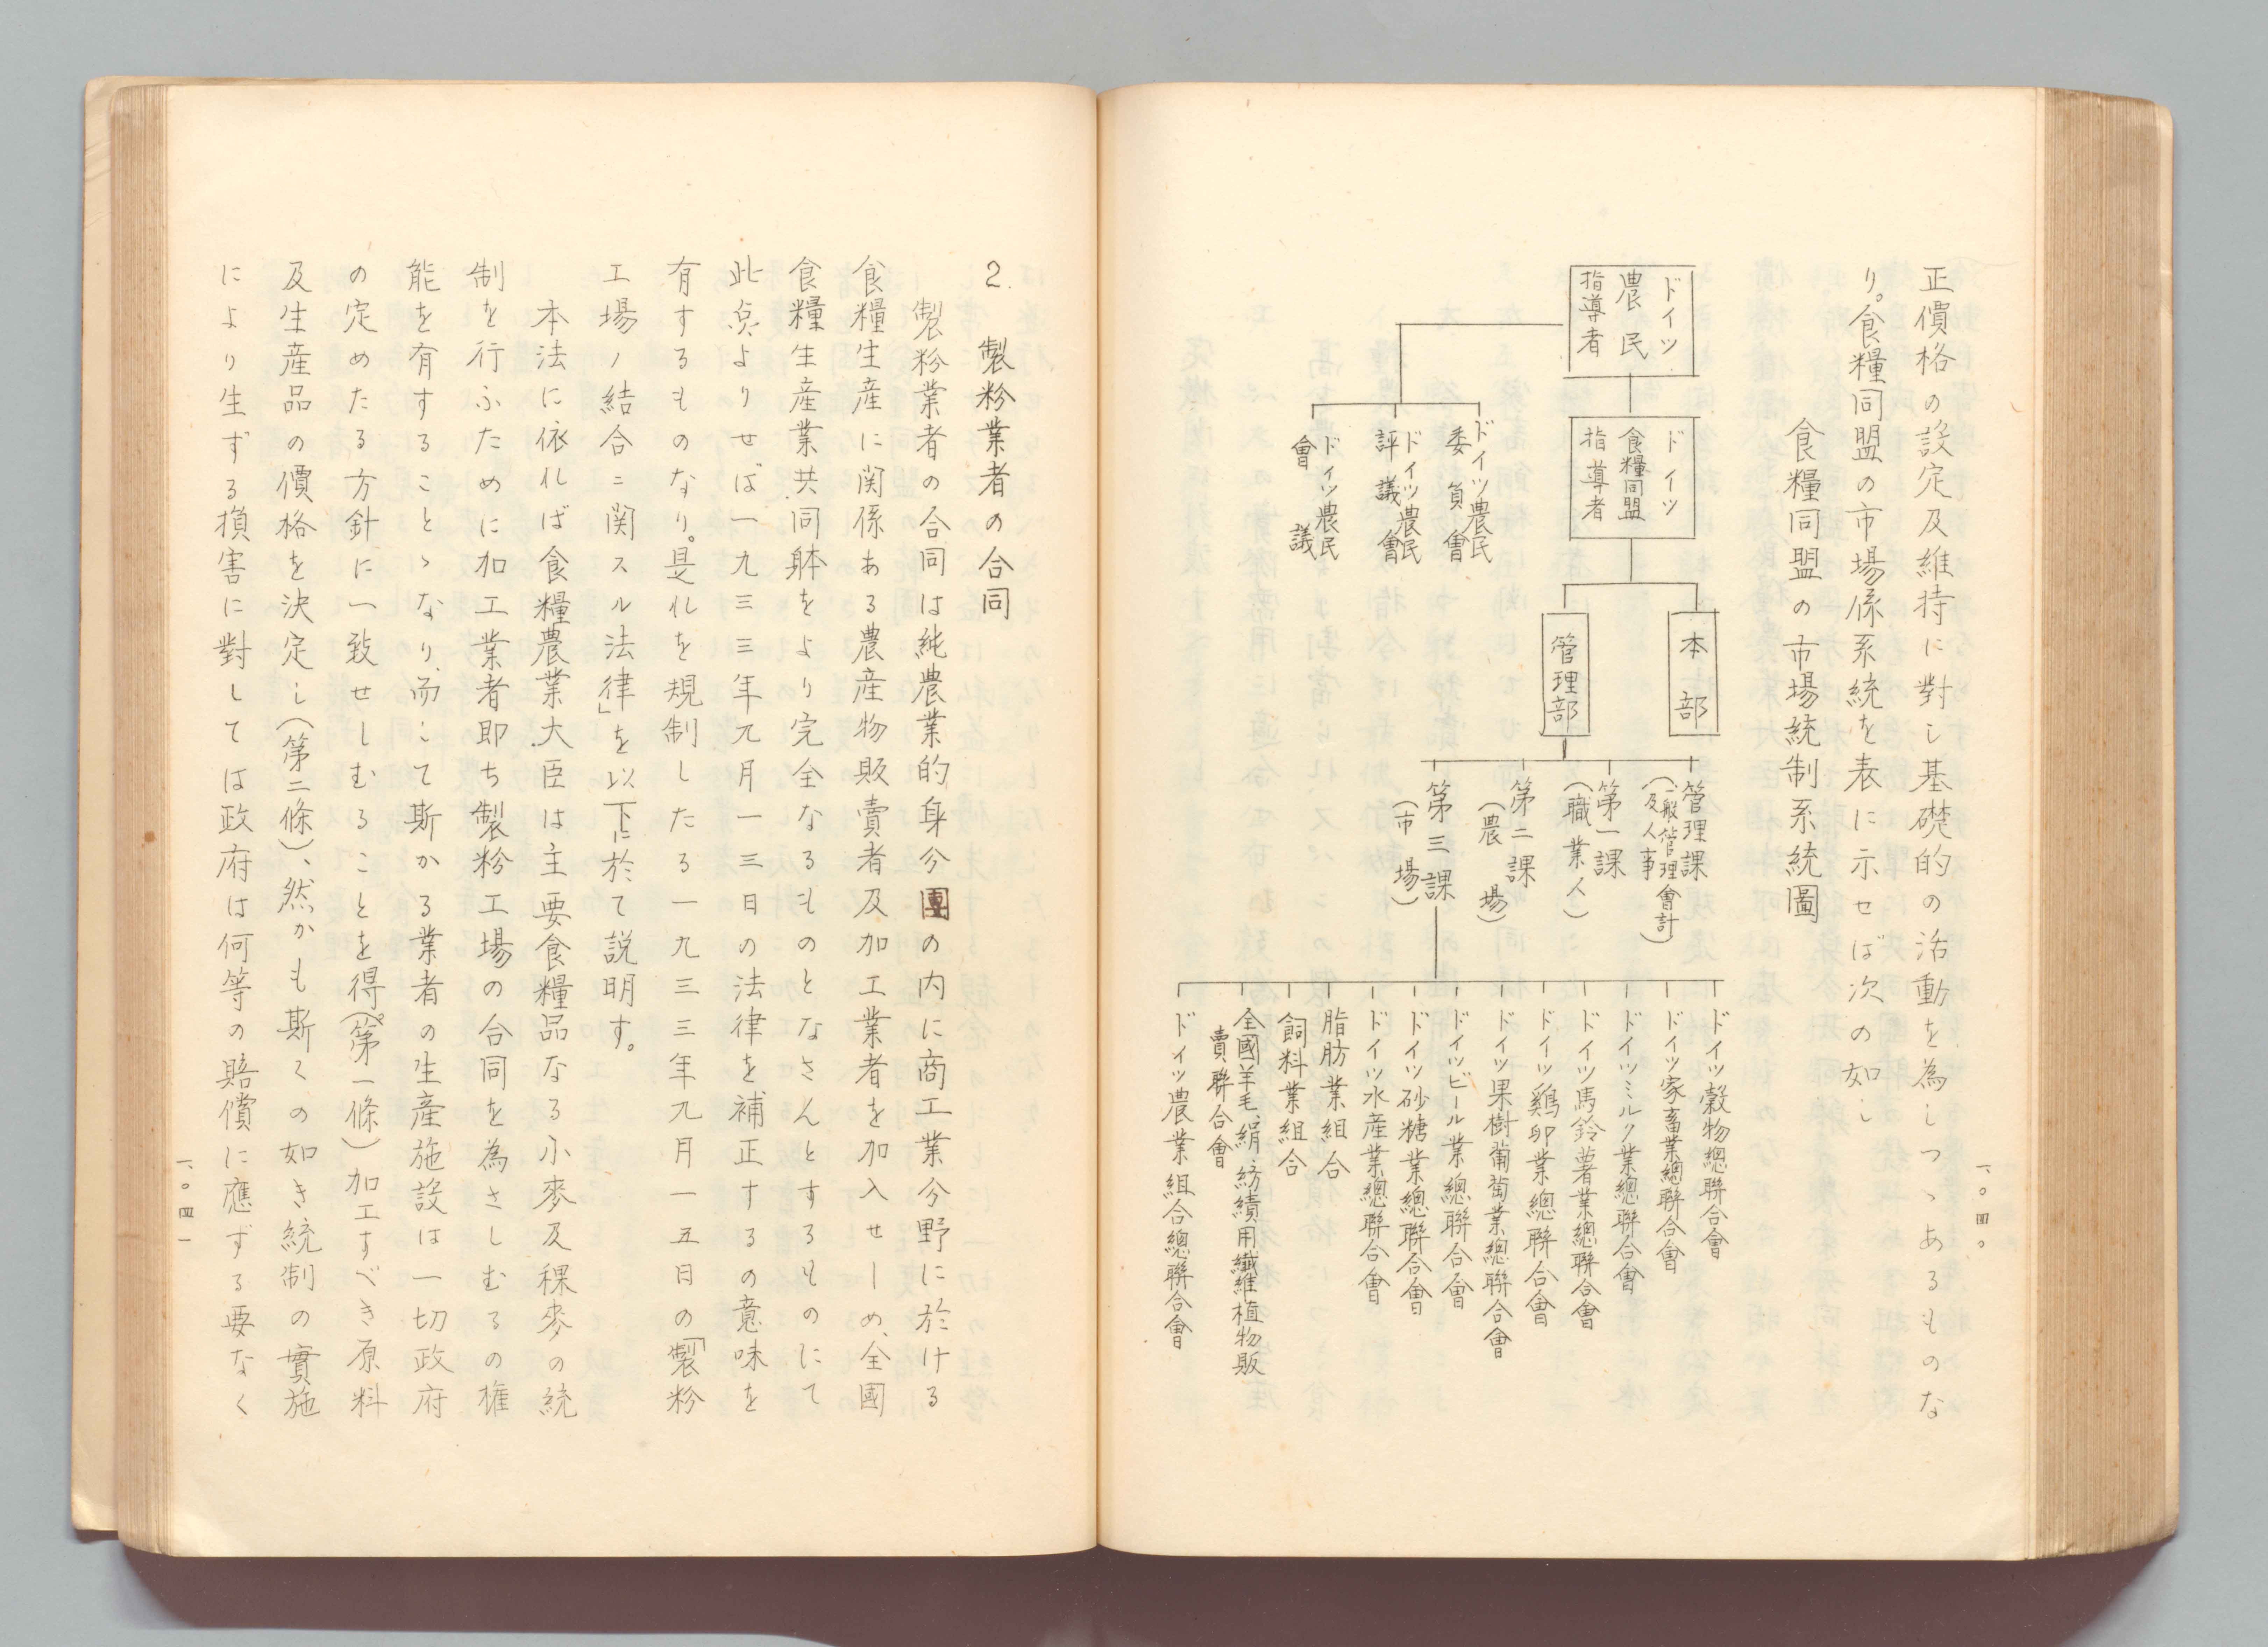 正價格の設定及維持に對し基礎的の活動を為しつゝあるものな
り。食糧同盟の市場係系統を表に示せば次の如し
食糧同盟の市場統制系統圖
ドイツ
農民
指導者
ドイツ
食糧同盟
指導者
ドイツ農民
委員會
ドイツ農民
評議會
ドイツ農民
會議
本部
管理部
管理課
(一般管理會計
及人事)
第一課
(職業人)
第二課
(農場)
第三課
(市場)
ドイツ穀物總聯合會
ドイツ家畜業總聯合會
ドイツミルク業總聯合會
ドイツ馬鈴薯業總聯合會
ドイツ鷄卵業總聯合會
ドイツ果樹葡萄業總聯合會
ドイツビール業總聯合會
ドイツ砂糖業總聯合會
ドイツ水産業總聯合會
脂肪業組合
飼料業組合
全國羊毛、絹、紡績用纖維植物販
賣聯合會
ドイツ農業組合總聯合會
一、〇四〇
2. 製粉業者の合同
製粉業者の合同は純農業的身分團の内に商工業分野に於ける
食糧生産に関係ある農産物販賣者及加工業者を加入せしめ、全國
食糧生産業共同躰をより完全なるものとなさんとするものにて
此点よりせば一九三三年九月一三日の法律を補正するの意味を
有するものなり。是れを規制したる一九三三年九月一五日の「製粉
工場ノ結合ニ関スル法律」を以下に於て説明す。
本法に依れば食糧農業大臣は主要食糧品なる小麥及稞麥の統
制を行ふために加工業者即ち製粉工場の合同を為さしむるの権
能を有することゝなり、而して斯かる業者の生産施設は一切政府
の定めたる方針に一致せしむることを得(第一條)。加工すべき原料
及生産品の價格を決定し(第二條)、然かも斯くの如き統制の實施
により生ずる損害に對しては政府は何等の賠償に應ずる要なく
一、〇四一